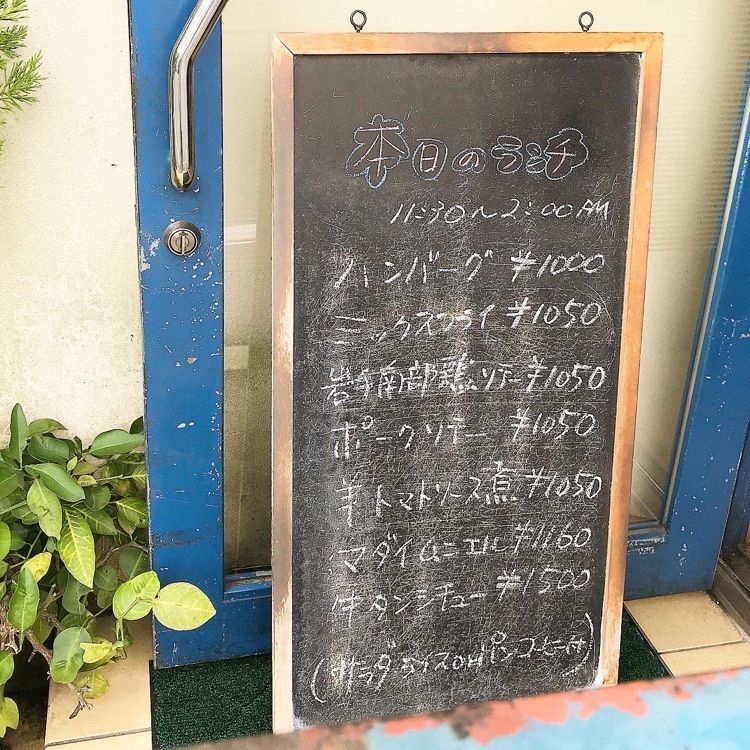 本日のランチ
11:30〜2:00 AM
ハンバーグ ¥1000
ミックスフライ ¥1050
岩手南部鶏ソテー ¥1050
ポークソテー ¥1050
羊トマトソース煮 ¥1050
マダイムニエル ¥1160
牛タンシチュー ¥1500
(サラダ ライスorパン コーヒー付)